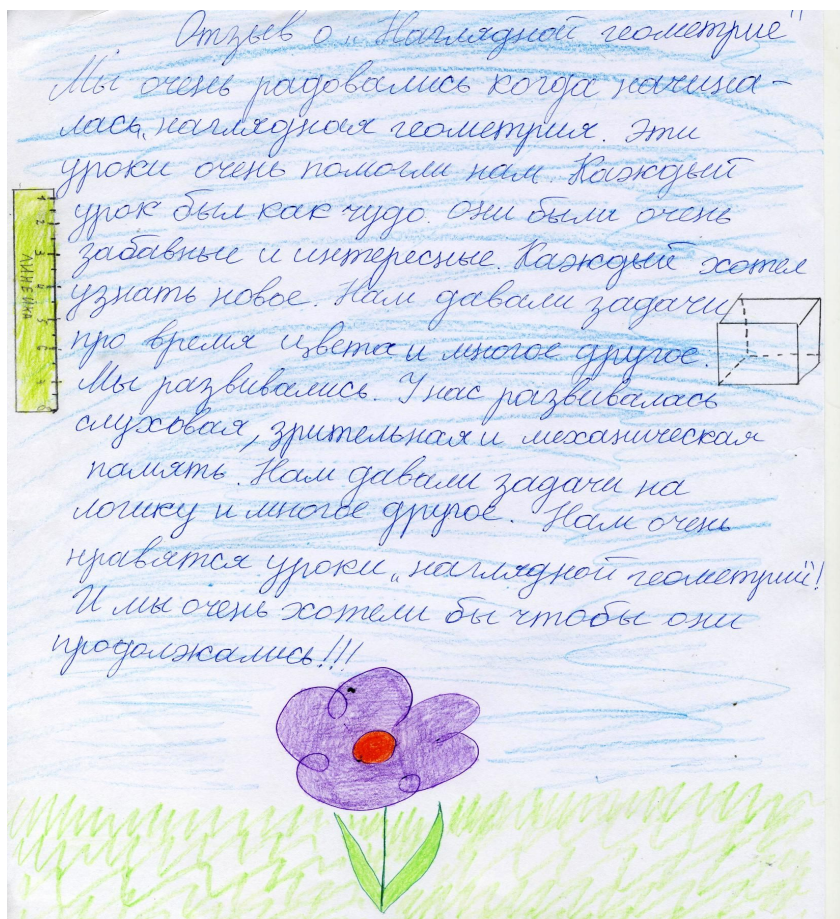 Отзыв о „Наглядной геометрие"
Мы очень радовались когда начина-
лась „наглядная геометрия. Эти
уроки очень помогли нам. Каждый
урок был как чудо. Они были очень
забавные и интересные. Каждый хотел
узнать новое. Нам давали задачи
про время цвета и многое другое.
Мы развивались. У нас развивалась
слуховая, зрительная и механическая
память. Нам давали задачи на
логику и многое другое. Нам очень
нравятся уроки „наглядной геометрий"!
И мы очень хотели бы чтобы они
продолжались!!!
ЛИНЕЙКА
1
2
3
4
5
6
7
8